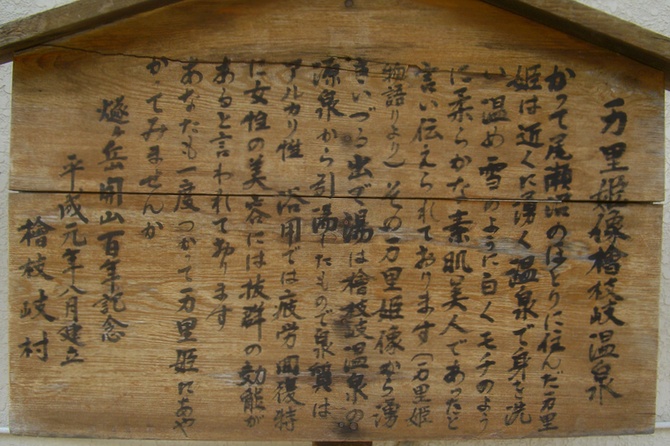 万里姫像檜枝岐温泉
かつて尾瀬沼のほとりに住んだ万里
姫は近くに湧く温泉で身を洗
い温め雪のように白くモチのよう
に柔らかな素肌美人であったと
言い伝えられております(万里姫
物語りより)その万里姫像から湧
きいづる出で湯は檜枝岐温泉の
源泉から引湯したもので泉質は
アルカリ性 浴用では疲労回復特
に女性の美容には抜群の効能が
あると言われております
あなたも一度つかって万里姫にあや
かってみませんか
燧ヶ岳開山百年記念
平成元年八月建立
檜枝岐村